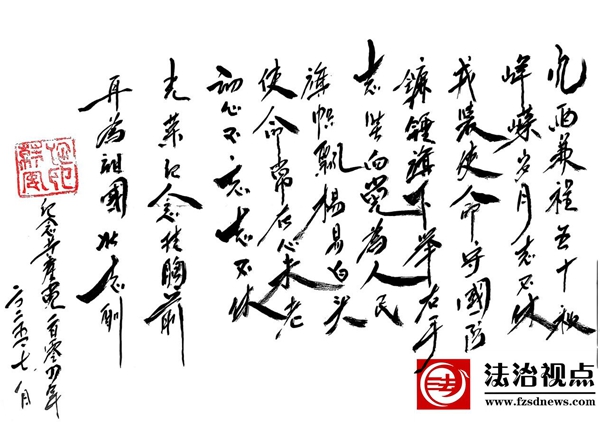 风雨兼程五十秋
峥嵘岁月志不休
戎装使命守國防
鐮錘旗下举右手
志坚向党为人民
旗帜飘扬易白头
使命常在心未老
初心不忘志不休
光荣纪念挂胸前
再為祖國壮志酬
纪念共産党一百零四年
七月
法治视点
www.fzsdnews.com